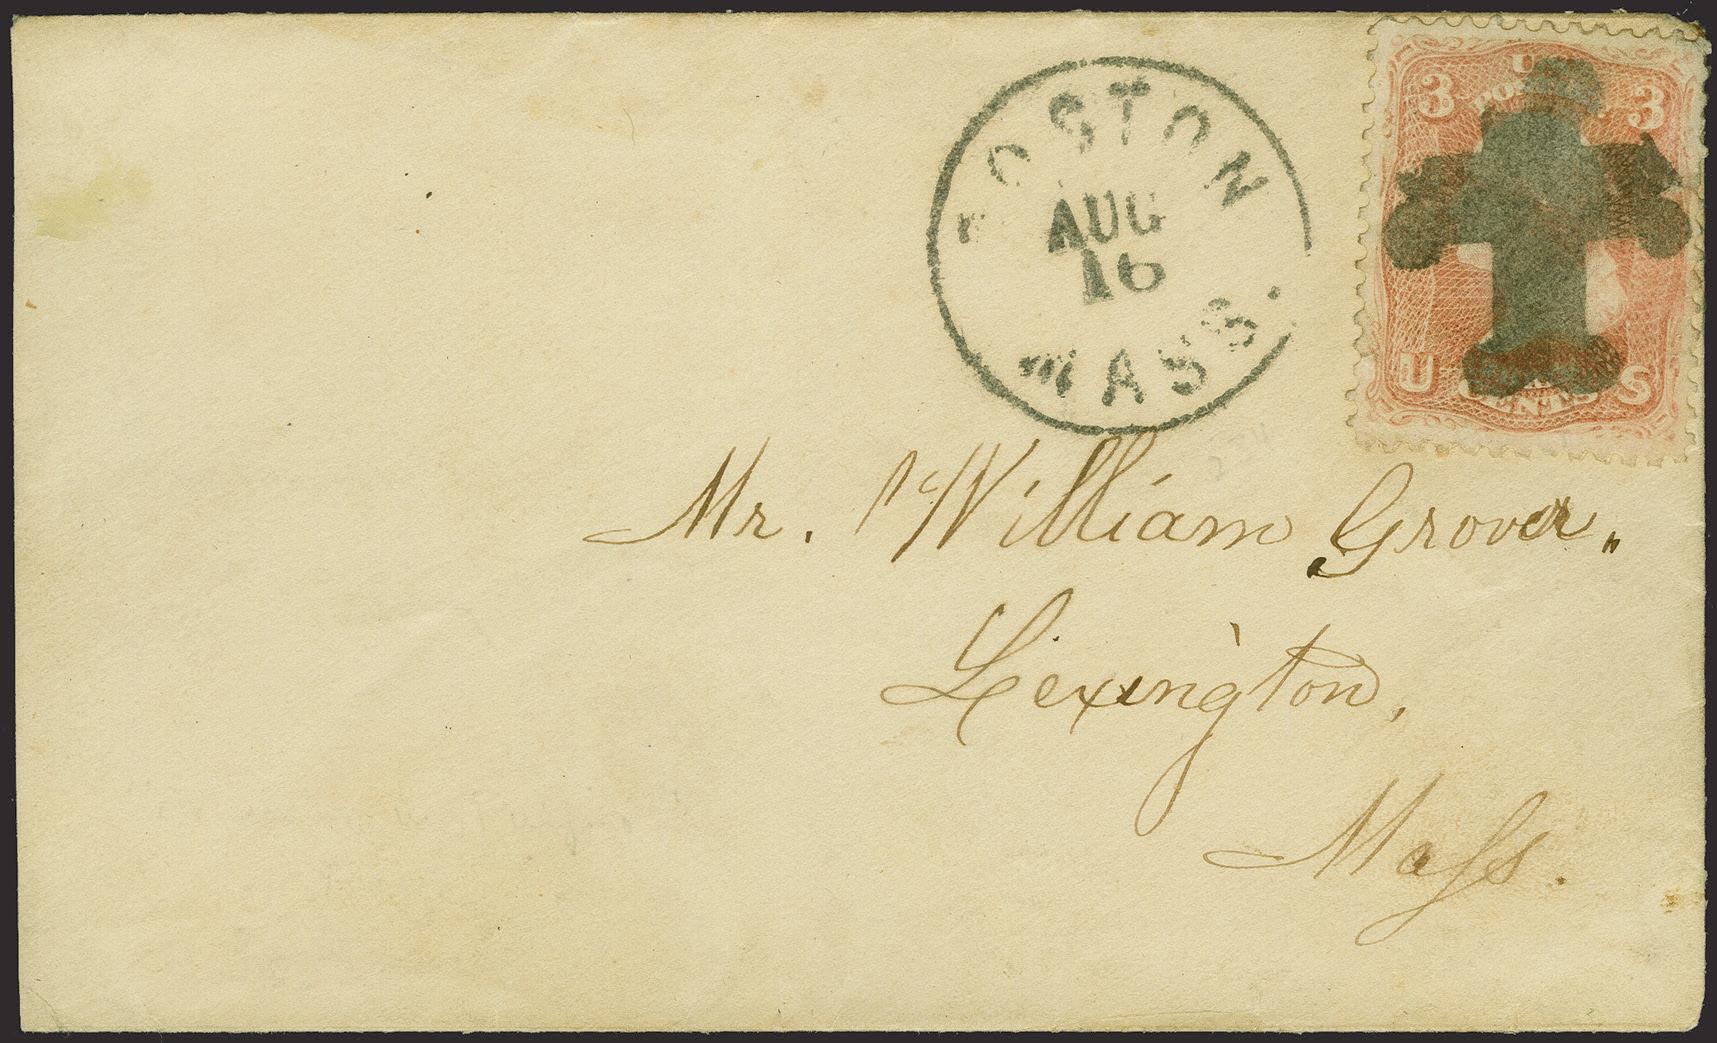 BOSTON
AUG
16
MASS.
3 U 3
U CENTS S
Mr. William Grover.
Lexington,
Mass.